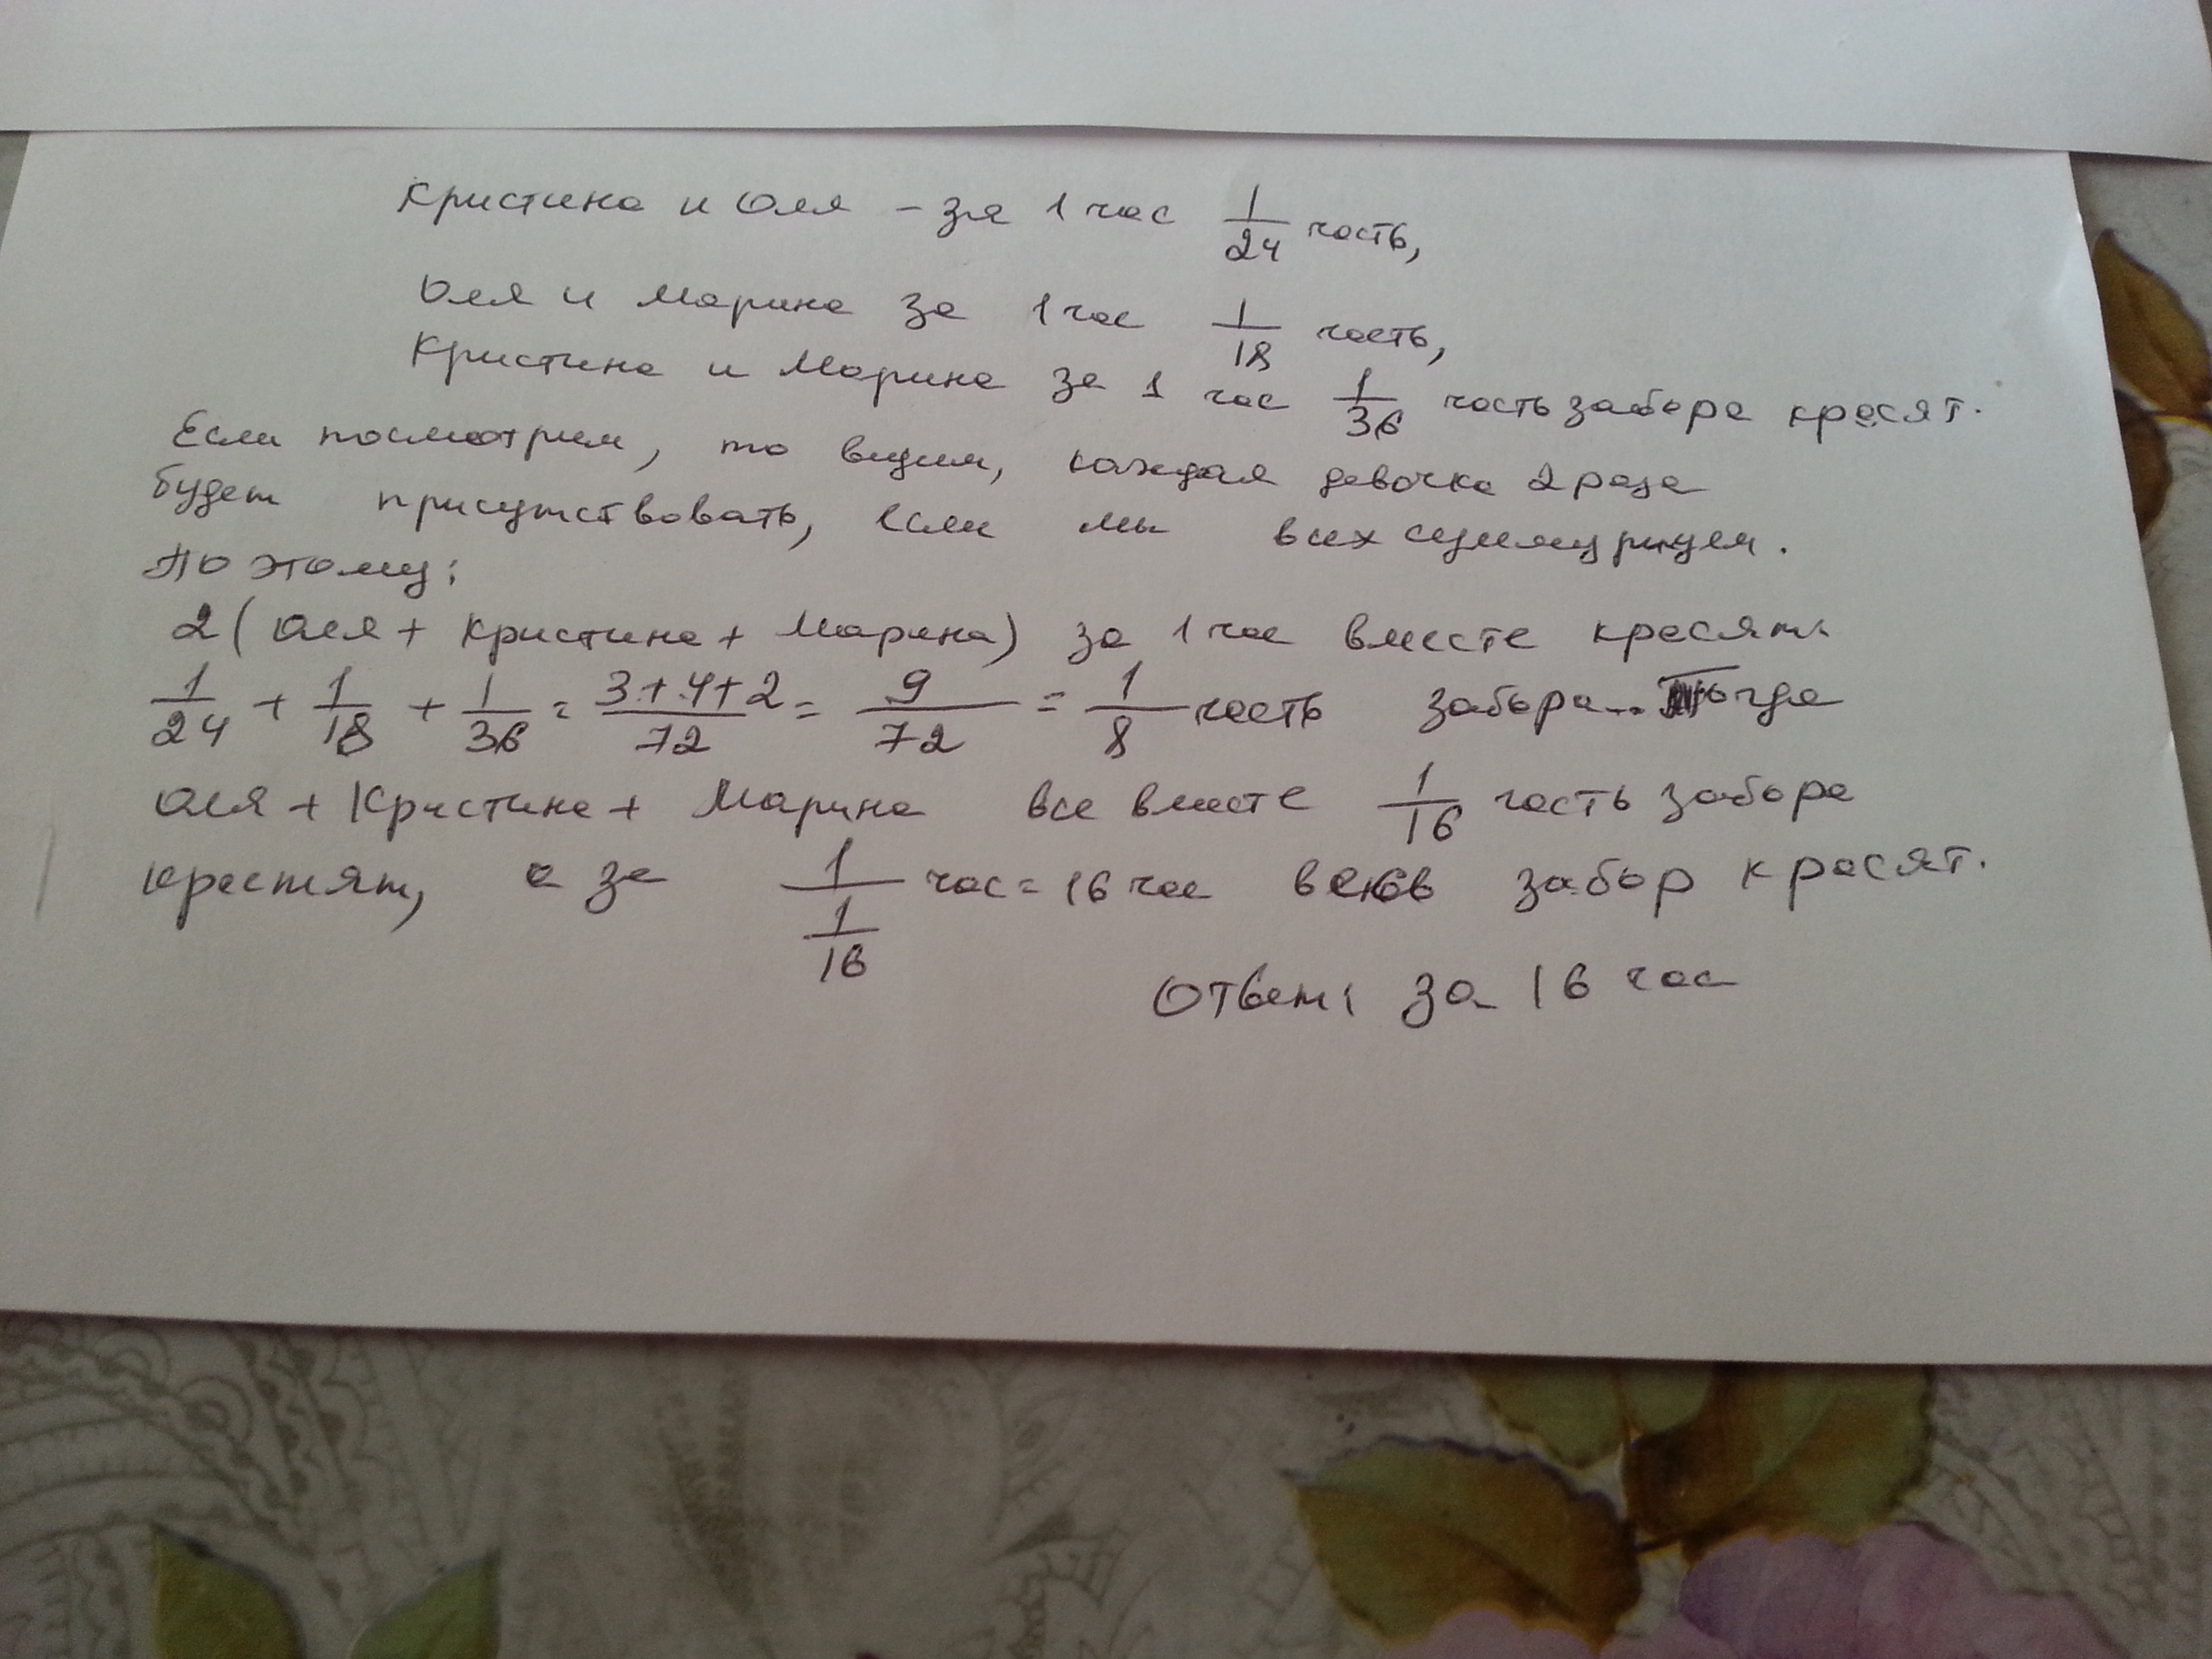 Кристина и Оля – за 1 час 1/24 часть,
Оля и Марина за 1 час 1/18 часть,
Кристина и Марина за 1 час 1/36 часть забора красят.
Если посмотрим, то видим, каждая девочка 2 раза
будет присутствовать, если мы всех суммируем.
По этому:
2 (Оля + Кристина + Марина) за 1 час вместе красят:
1/24 + 1/18 + 1/36 = (3+4+2)/72 = 9/72 = 1/8 часть забора. Тогда
Оля + Кристина + Марина все вместе 1/16 часть забора
красят, а за 1/(1/16) час = 16 час забор красят.
Ответ: за 16 час